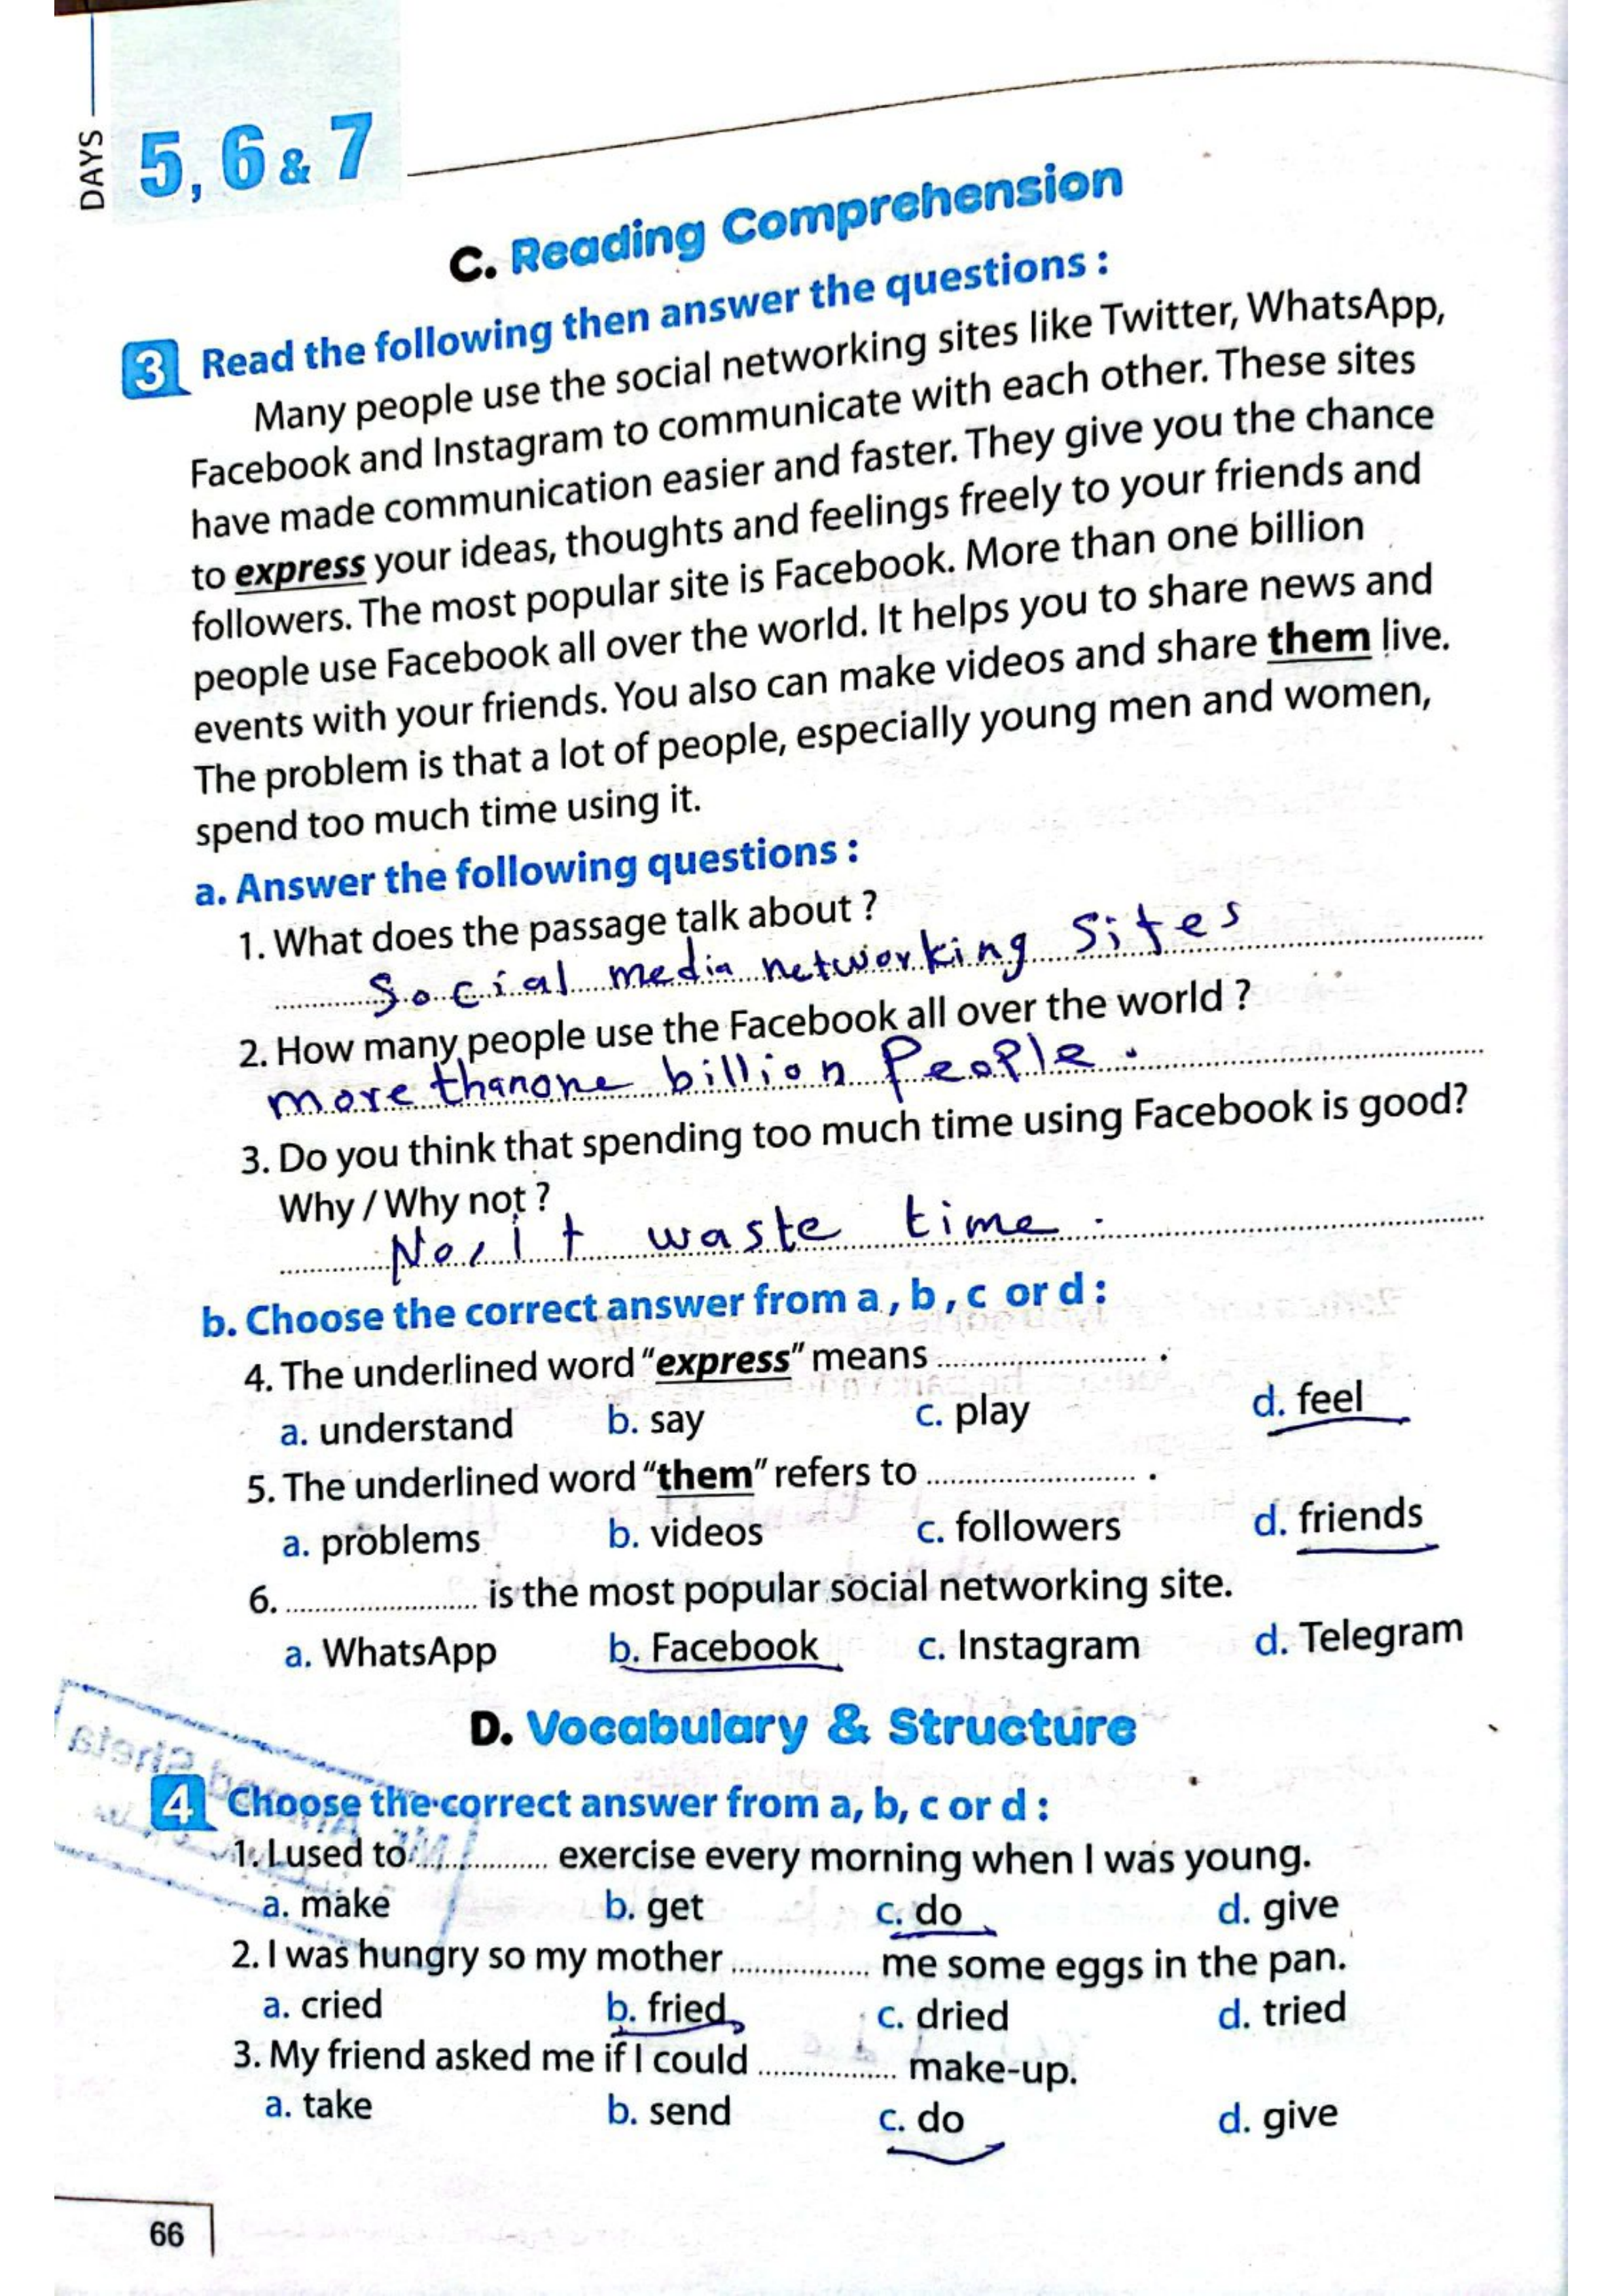 DAYS
5, 6 & 7
C. Reading Comprehension
3 Read the following then answer the questions :
Many people use the social networking sites like Twitter, WhatsApp,
Facebook and Instagram to communicate with each other. These sites
have made communication easier and faster. They give you the chance
to express your ideas, thoughts and feelings freely to your friends and
followers. The most popular site is Facebook. More than one billion
people use Facebook all over the world. It helps you to share news and
events with your friends. You also can make videos and share them live.
The problem is that a lot of people, especially young men and women,
spend too much time using it.
a. Answer the following questions :
1. What does the passage talk about ?
Social media networking Sites
2. How many people use the Facebook all over the world ?
more thanone billion People.
3. Do you think that spending too much time using Facebook is good?
Why / Why not ?
No, It waste time.
b. Choose the correct answer from a , b , c or d :
4. The underlined word "express" means ........................ .
a. understand b. say c. play d. feel
5. The underlined word "them" refers to ........................ .
a. problems b. videos c. followers d. friends
6. ........................ is the most popular social networking site.
a. WhatsApp b. Facebook c. Instagram d. Telegram
D. Vocabulary & Structure
4 Choose the correct answer from a, b, c or d :
1. I used to ................ exercise every morning when I was young.
a. make b. get c. do d. give
2. I was hungry so my mother ................ me some eggs in the pan.
a. cried b. fried c. dried d. tried
3. My friend asked me if I could ................ make-up.
a. take b. send c. do d. give
66